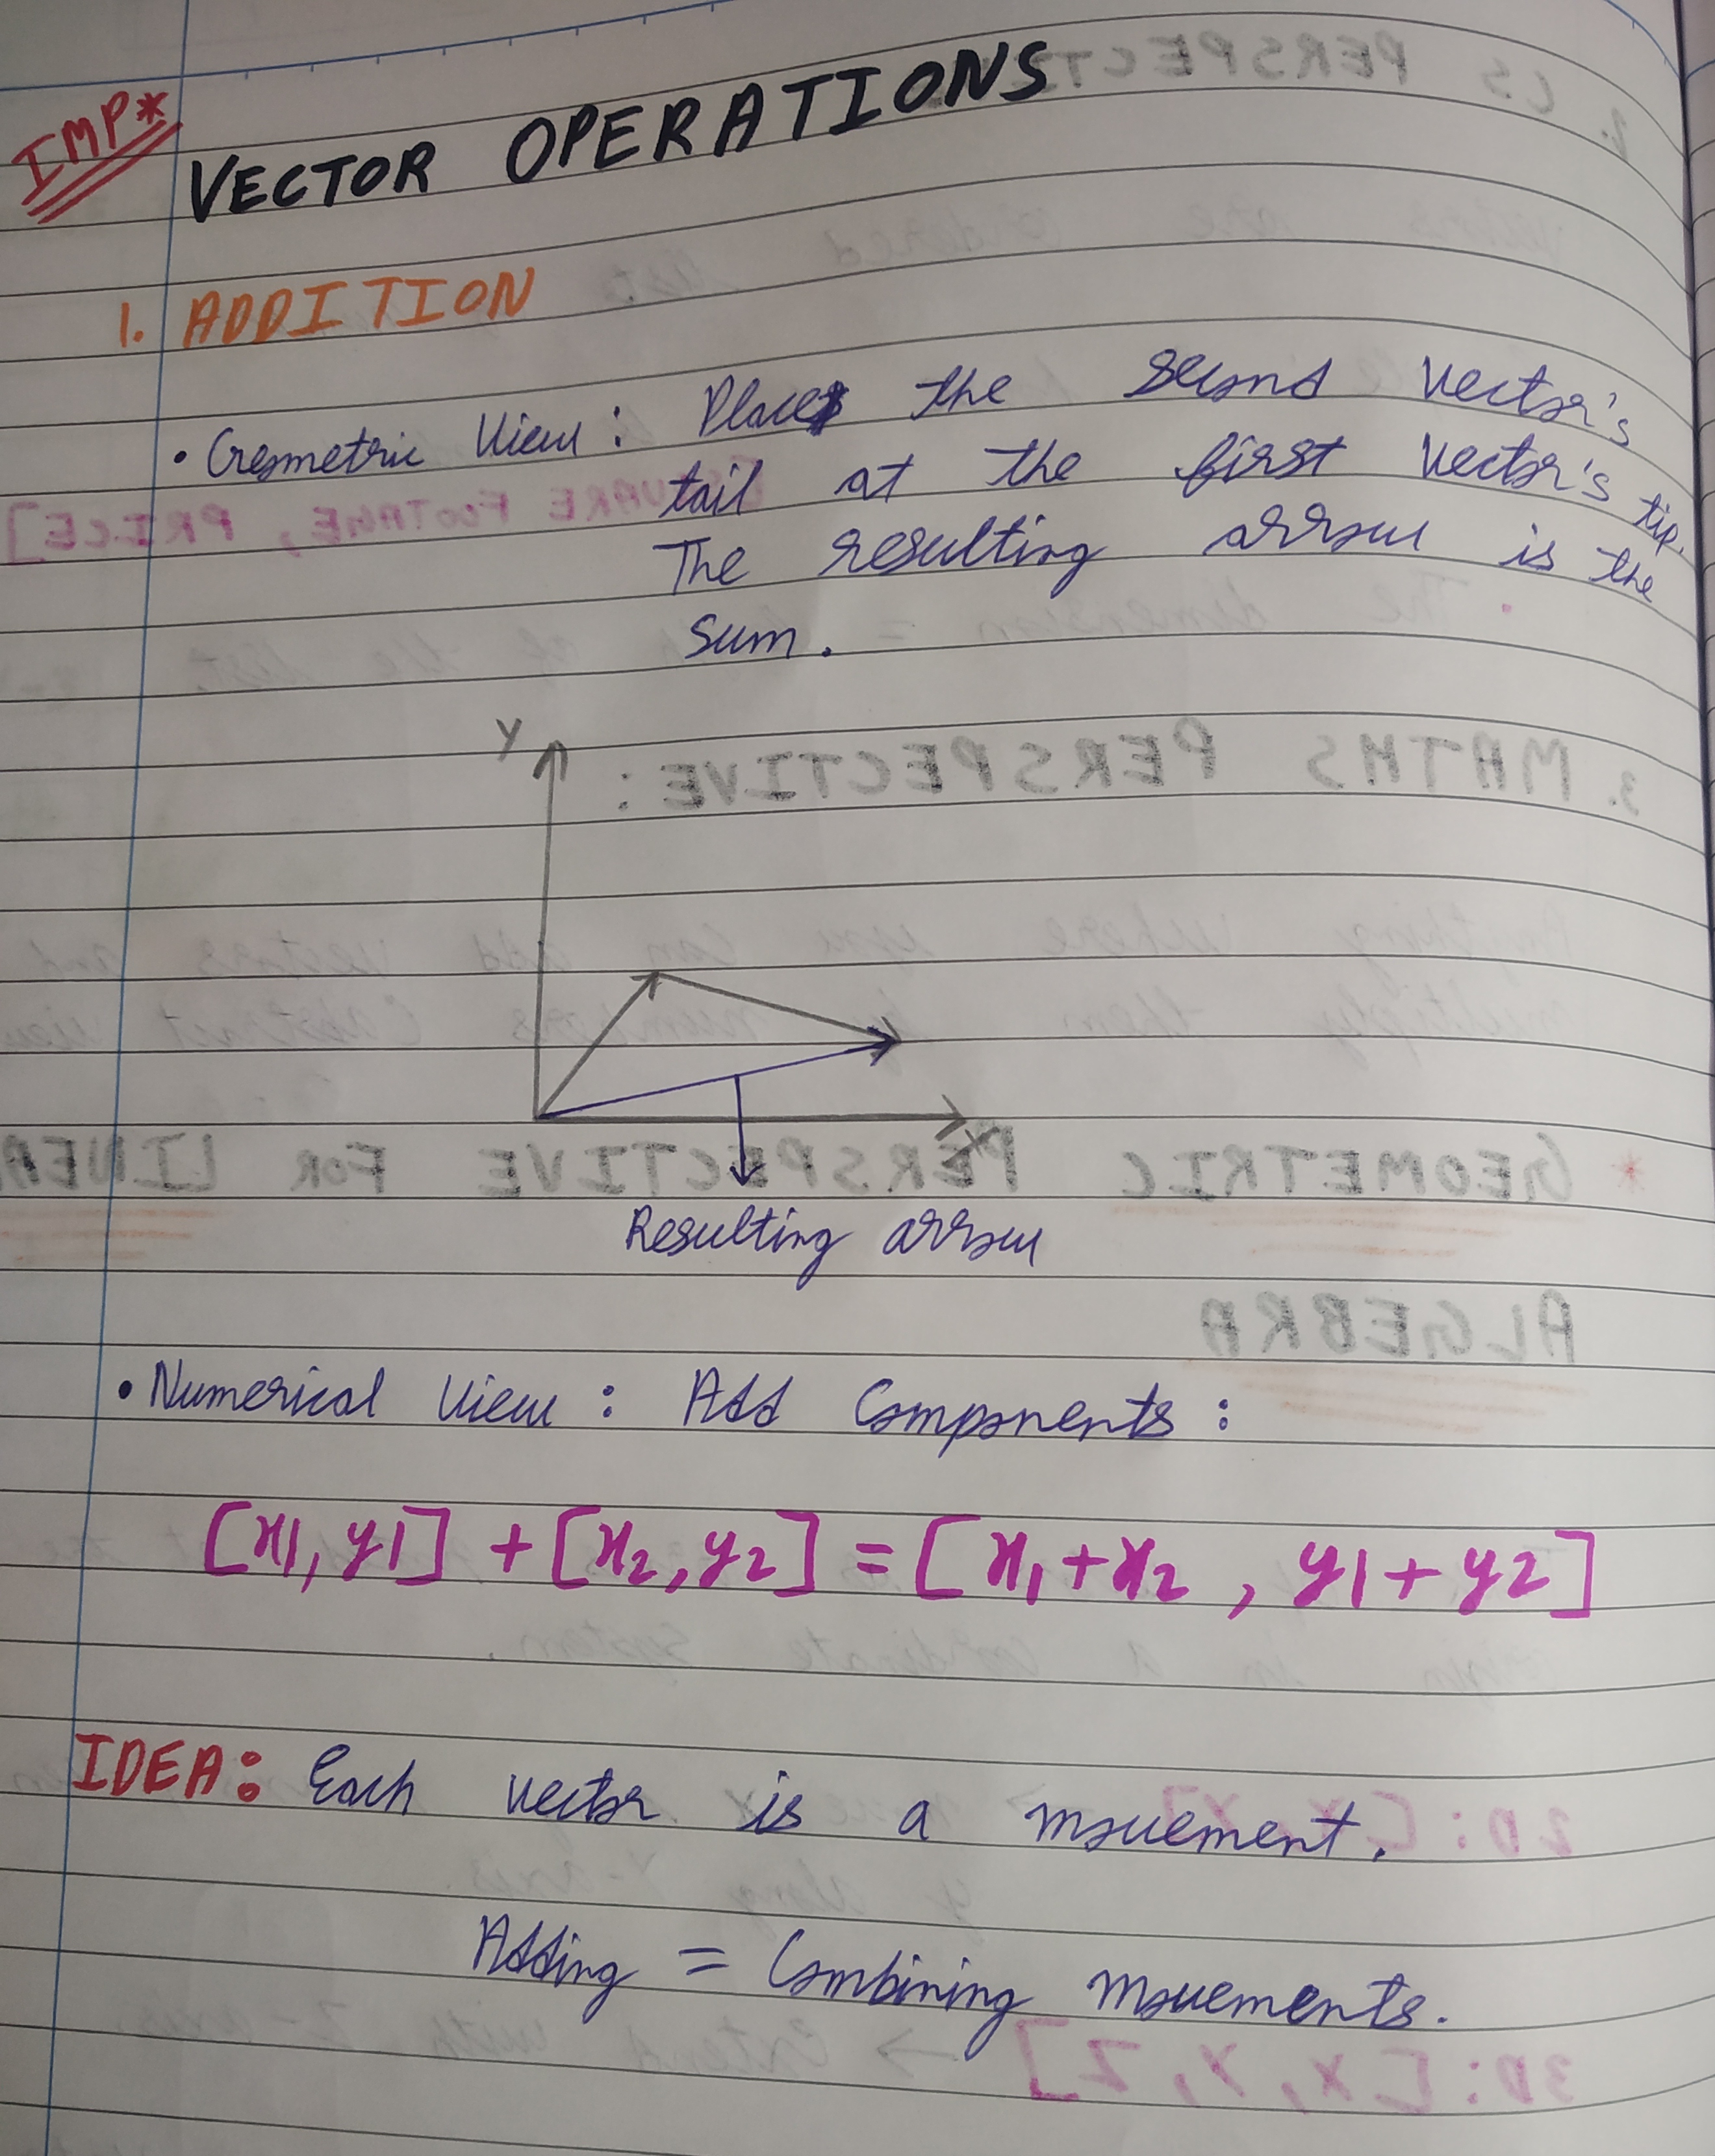 IMP*
VECTOR OPERATIONS
1. ADDITION
• Geometric View : Place the second vector's
tail at the first vector's tip.
The resulting arrow is the
sum.
Y
X
Resulting arrow
• Numerical View : Add Components :
[x1, y1] + [x2, y2] = [x1 + x2 , y1 + y2]
IDEA: Each vector is a movement.
Adding = Combining movements.